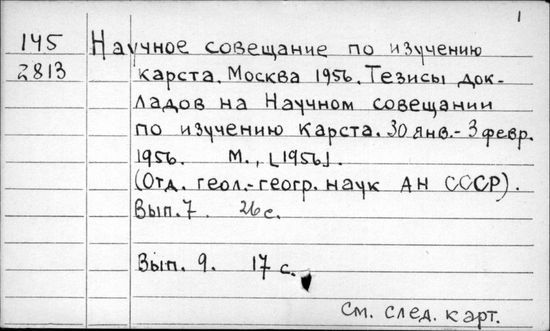 1
145 Научное совещание по изучению
2813 карста. Москва 1956. Тезисы док-
ладов на Научном совещании
по изучению карста. 30 янв.- 3 февр.
1956. М., [1956].
(Отд. геол.-геогр. наук АН СССР).
Вып. 7. 26 с.
Вып. 9. 17 с.
См. след. карт.